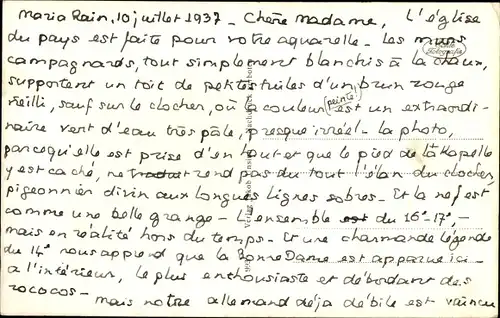 Maria Rain, 10 juillet 1937 - Chère Madame, L'église
du pays est faite pour votre aquarelle - Les murs
campagnards, tout simplement blanchis à la chaux,
supportent un toit de petites tuiles d'un brun rouge
vieilli, sauf sur le clocher, où la couleur (peinte) est un extraordi-
naire vert d'eau très pâle, presque irréel - La photo,
parcequ'elle est prise d'en haut et que le pied de la Kapelle
y est caché, ne traduit rend pas du tout l'élan du clocher,
pigeonnier divin aux longues lignes sobres - Et la nef est
comme une belle grange - L'ensemble est du 16e-17e -
mais en réalité hors du temps - Et une charmante légende
du 14e nous apprend que la Bonne Dame est apparue ici -
a l'intérieur, le plus enthousiaste et débordant des
rococos - mais notre allemand déjà débile est vaincu